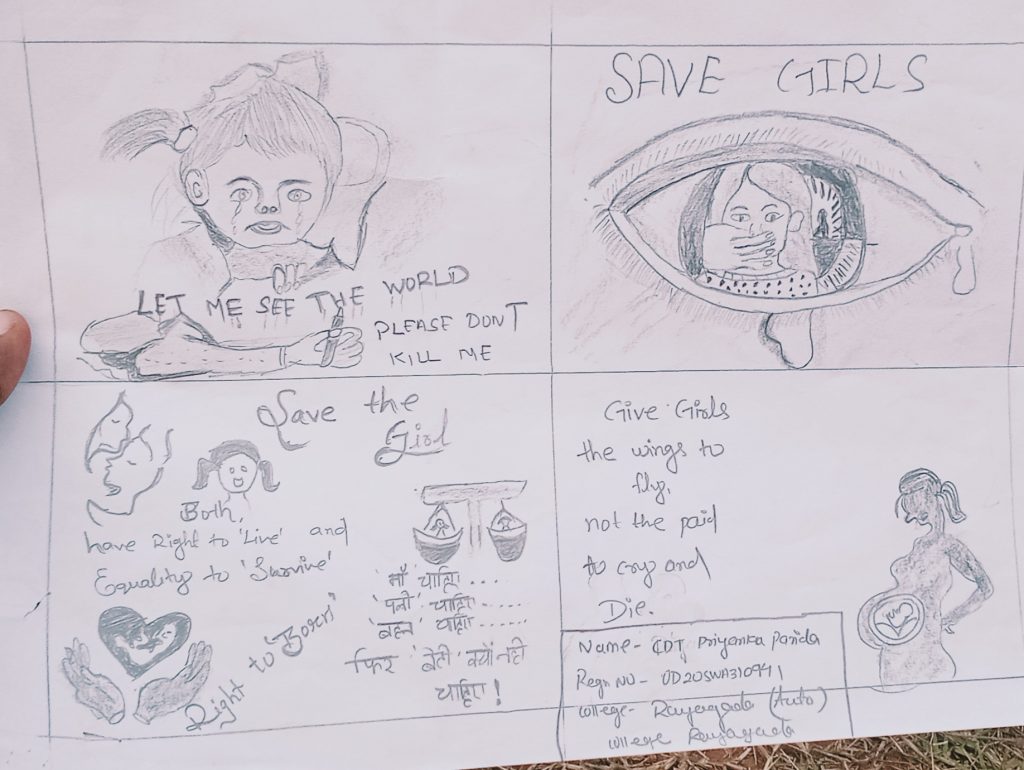 LET ME SEE THE WORLD
PLEASE DON'T
KILL ME
SAVE GIRLS
Save the
Girl
Both,
have Right to 'Live' and
Equality to 'Survive'
Right to 'Born'
'माँ' चाहिए ....
'पत्नी' चाहिए .....
'बहन' चाहिए ......
फिर 'बेटी' क्यों नहीं
चाहिए !
Give Girls
the wings to
fly,
not the paid
to cry and
Die.
Name- CDT Priyanka Parida
Regn NO- OD20SWA310941
College- Rayagada (Auto)
College Rayagada